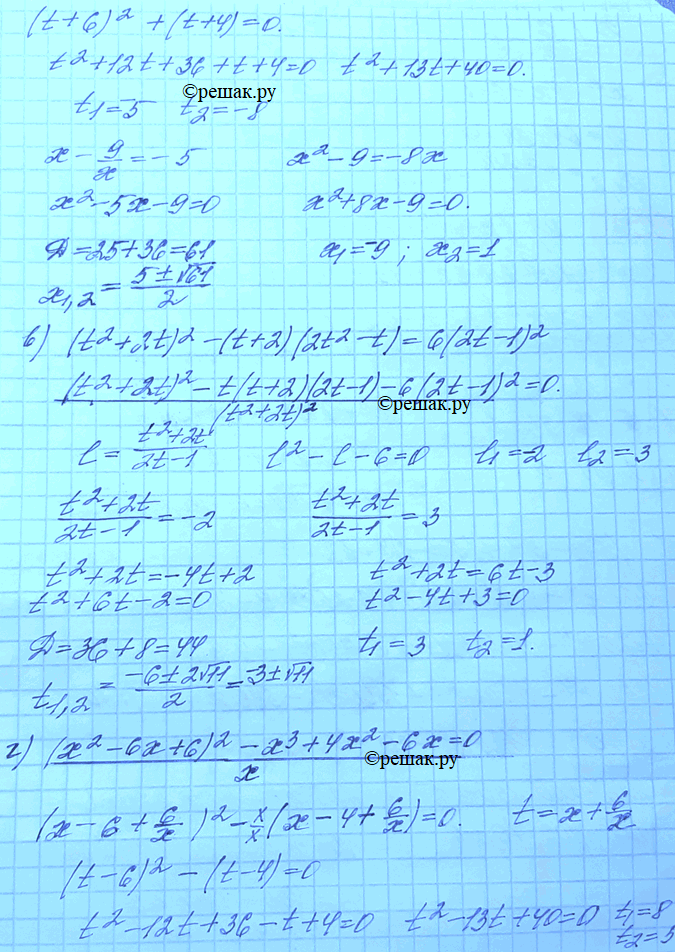 (t+6)² + (t+4)=0.
t²+12t+36+t+4=0 t²+13t+40=0.
©решак.ру
t₁=-5 t₂=-8
x - 9/x = -5 x²-9=-8x
x²-5x-9=0 x²+8x-9=0.
D=25+36=61 x₁=-9; x₂=1
x₁,₂ = (5±√61)/2
в) (t²+2t)² -(t+2)(2t²-t)=6(2t-1)²
(t²+2t)²-t(t+2)(2t-1)-6(2t-1)²=0.
©решак.ру
(t²+2t)²
l = (t²+2t)/(2t-1) l²-l-6=0 l₁=-2 l₂=3
(t²+2t)/(2t-1) = -2 (t²+2t)/(2t-1) = 3
t²+2t=-4t+2 t²+2t=6t-3
t²+6t-2=0 t²-4t+3=0
D=36+8=44 t₁=3 t₂=1.
t₁,₂ = (-6±2√11)/2 = -3±√11
г) ((x²-6x+6)² -x³+4x²-6x=0)/x
©решак.ру
(x-6+6/x)²-x/x(x-4+6/x)=0. t=x+6/x
(t-6)²-(t-4)=0
t²-12t+36-t+4=0 t²-13t+40=0 t₁=8
t₂=5